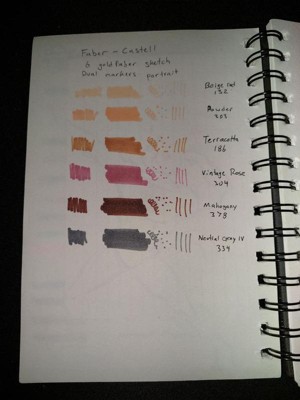 Faber - Castell
6 goldfaber sketch
Dual markers portrait
Beige red
132
Powder
Terracotta
186
Vintage Rose
204
Mahogany
378
Neutral Grey IV
334